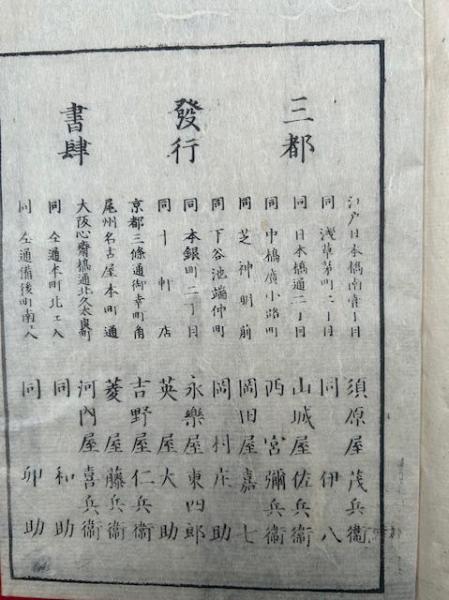 三都
發行
書肆
江戸日本橋南壹丁目 須原屋茂兵衞
同 淺草茅町二丁目 同 伊八
同 日本橋通二丁目 山城屋佐兵衞
同 中橋廣小路町 西宮彌兵衞
同 芝神明前 岡田屋嘉七
同 下谷池端仲町 岡村庄助
同 本銀町二丁目 永樂屋東四郎
同 十軒店 英屋大助
京都三條通御幸町角 吉野屋仁兵衞
尾州名古屋本町通 菱屋藤兵衞
大阪心齋橋通北久太良町 河内屋喜兵衞
同 仝通本町北エ入 同 和助
同 仝通備後町南エ入 同 卯助